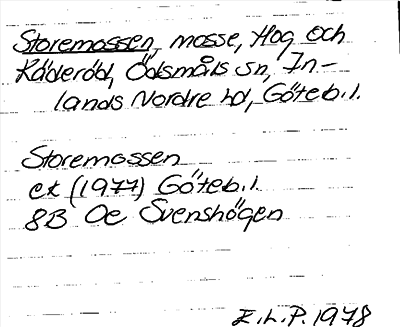 Storemossen, mosse, Hog och
Råderöd, Ödsmåls sn, In-
lands Nordre hd, Göteb. l.
Storemossen
ek (1977) Göteb. l.
8B Oe Svenshögen
E.L.P. 1978